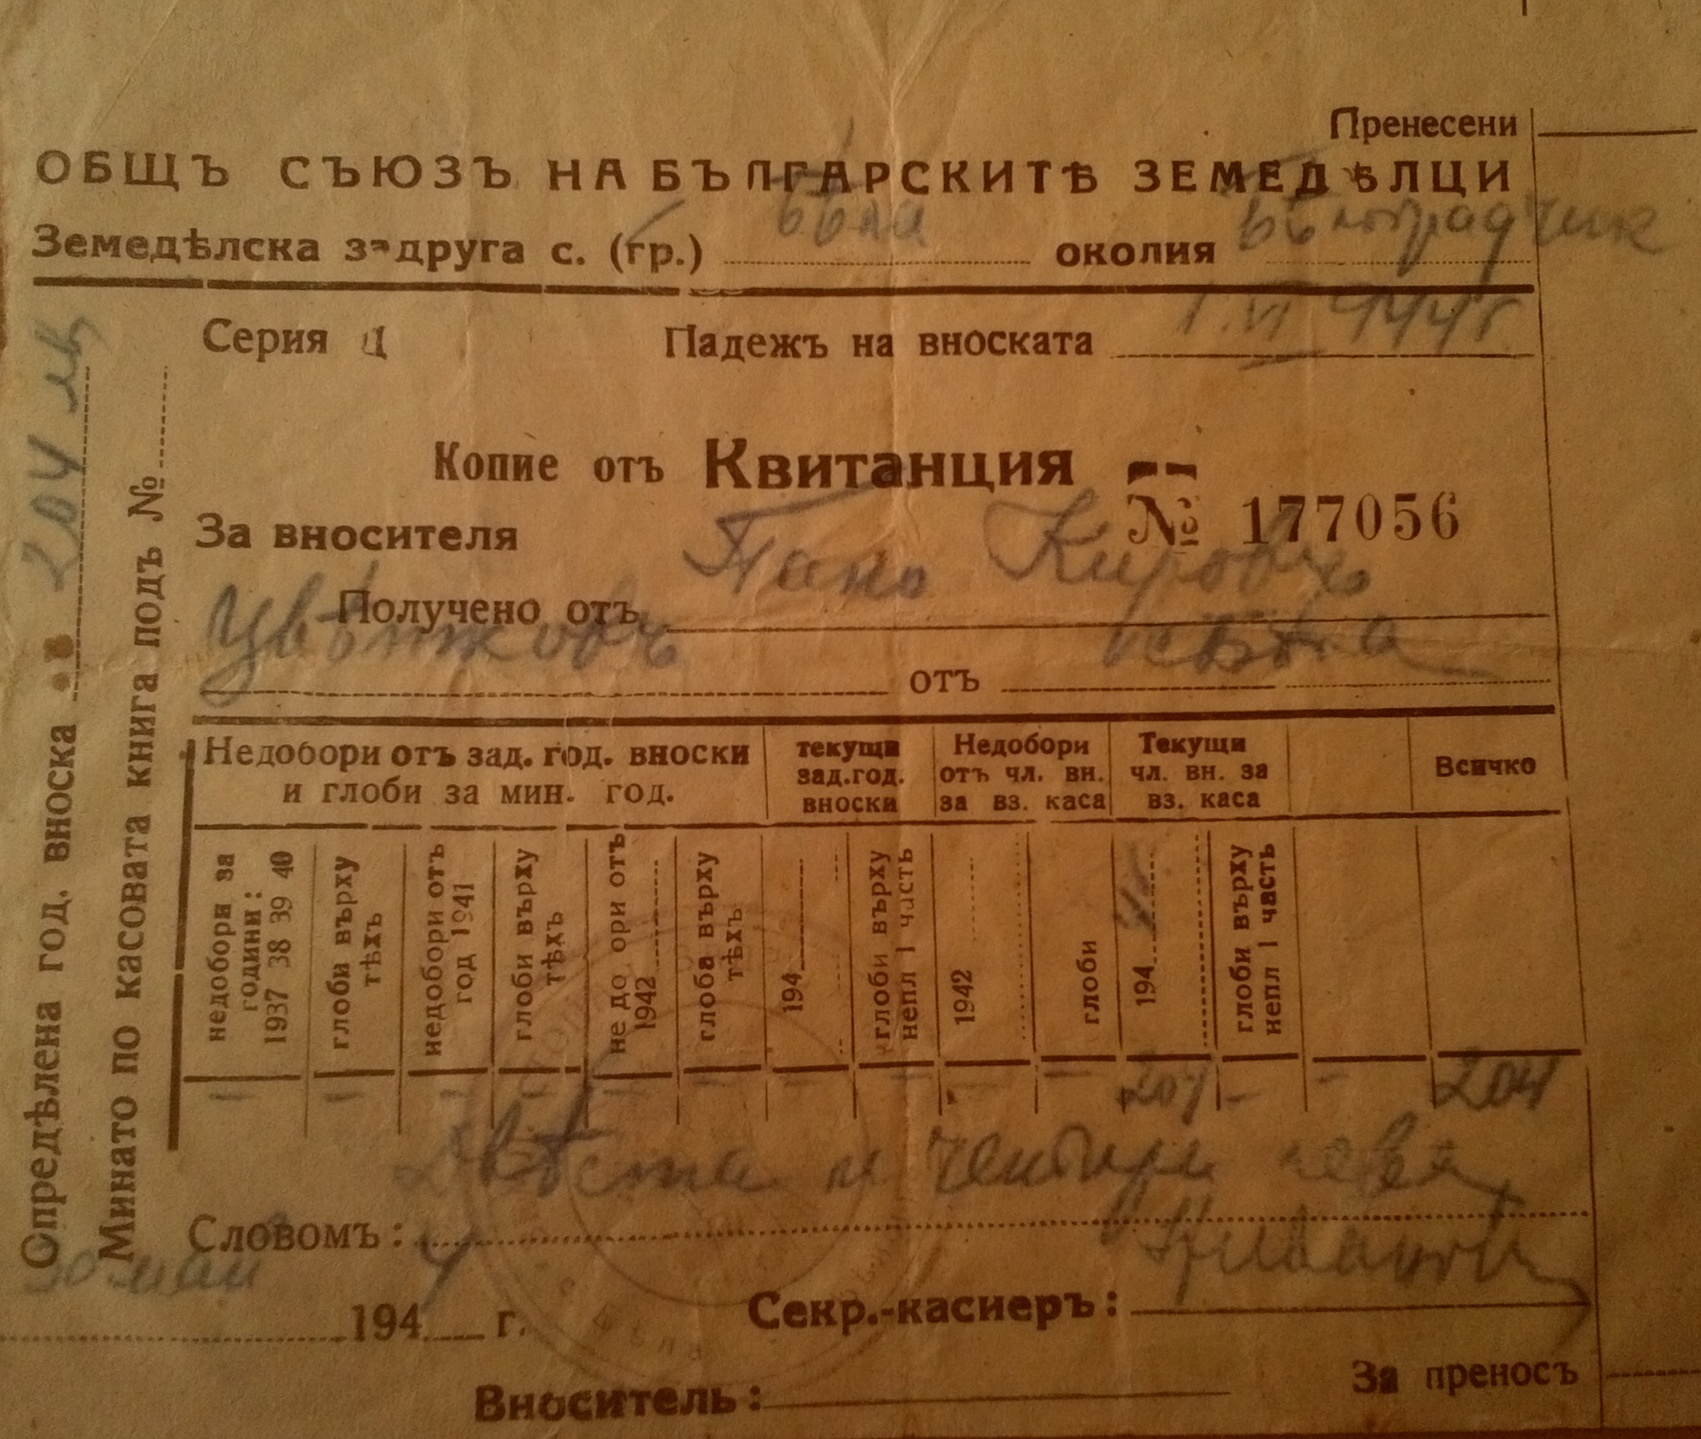 Пренесени
ОБЩЪ СЪЮЗЪ НА БЪЛГАРСКИТѢ ЗЕМЕДѢЛЦИ
Земедѣлска задруга с. (гр.) Бѣла околия Бѣлоградчик
Серия Д Падежъ на вноската 1.VI 944 г.
Копие отъ Квитанция
№ 177056
За вносителя
Получено отъ Пано Кировъ
Цвѣтковъ отъ с. Бѣла
Недобори отъ зад. год. вноски и глоби за мин. год.
текущи зад.год. вноски
Недобори отъ чл. вн. за вз. каса
Текущи чл. вн. за вз. каса
Всичко
недобори за години: 1937 38 39 40
глоби върху тѣхъ
недобори отъ год 1941
глоби върху тѣхъ
не до ори отъ 1942
глоба върху тѣхъ
194
глоби върху непл 1 часть
1942
глоби
194
глоби върху непл 1 часть
– – – – – – – – – – 204 – – 204
Двѣста и четири лева
Словомъ:
30 май 1944 г.
Секр.-касиеръ:
Вноситель:
За преносъ
Опредѣлена год. вноска 204 лв
Минато по касовата книга подъ №